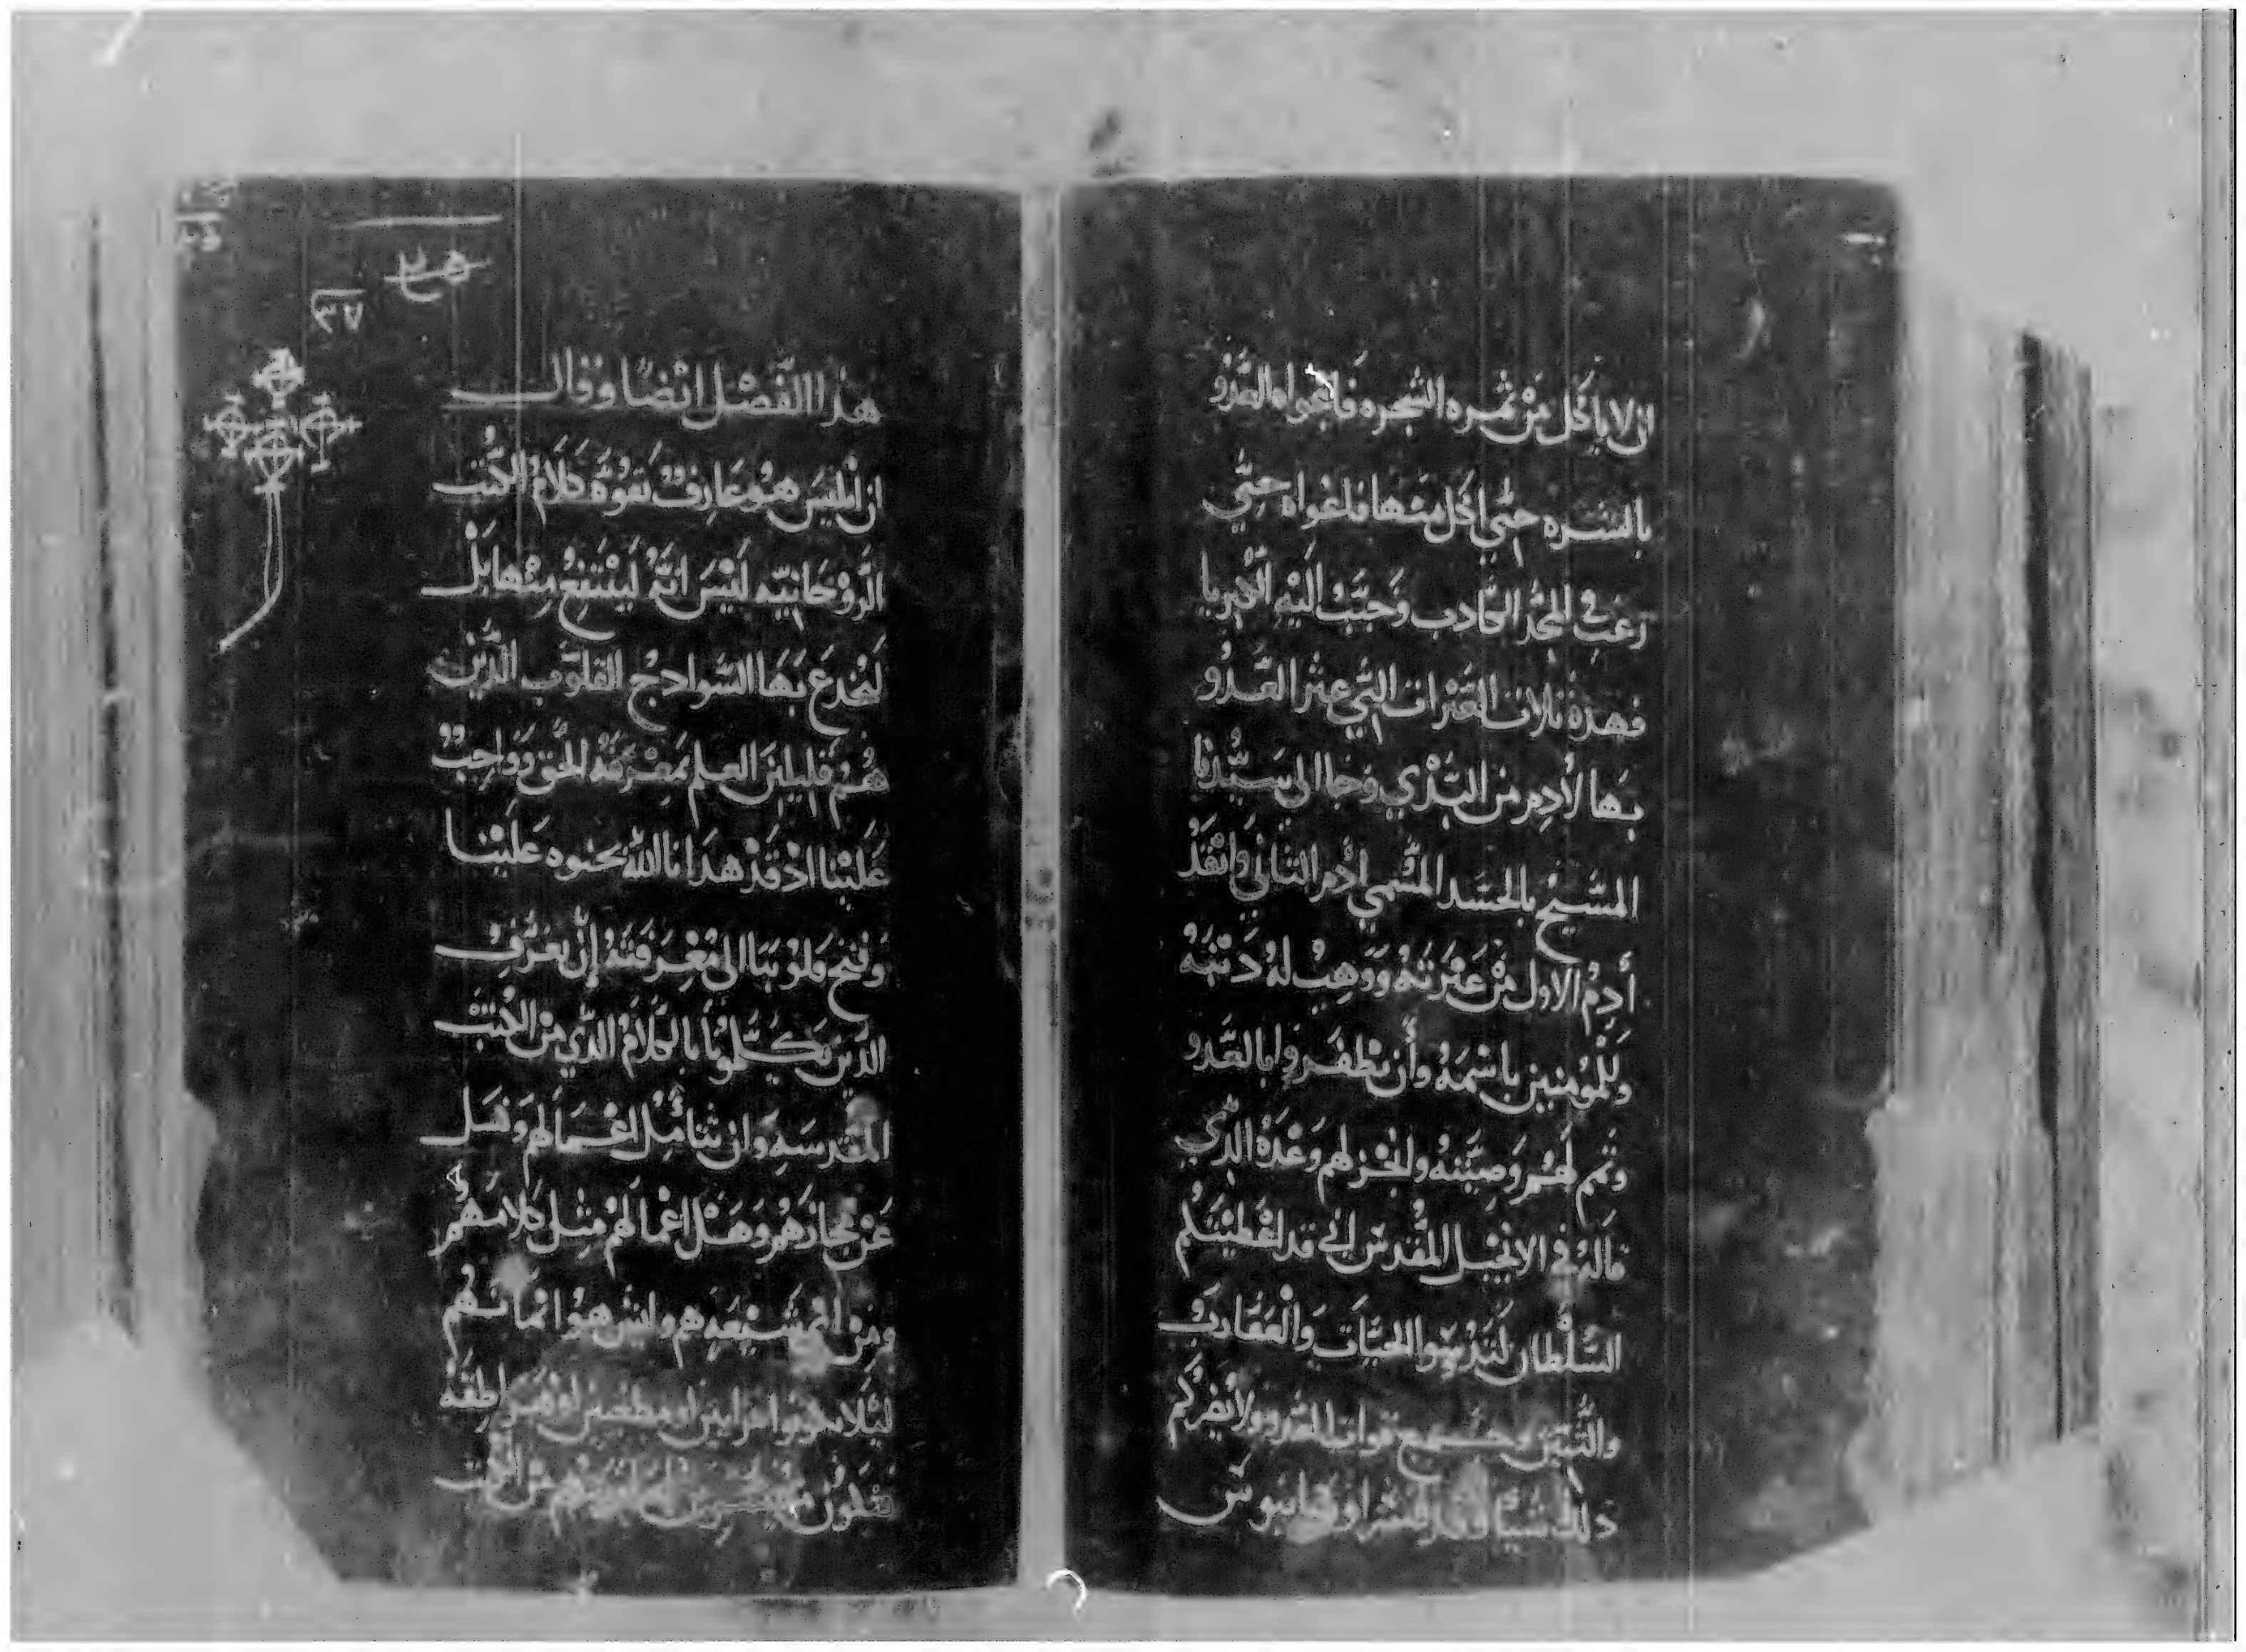 ان لا ياكل من ثمره الشجره فاغواه العدو
بالشره حتي اكل منها فاغواه حتي
رغب في المجد الكادب وحبب اليه
فهذه ثلاث العثرات التي عثر العدو
بها لأدم من البدي وجا الي سيدنا
المسيح بالجسد المسمي ادم التاني وانقذ
أدم الاول من عثرته ووهب له
وللمومنين باسمه وأن يظفروا بالعدو
وتمم لهم وصيته وانجز لهم وعده الدي
قاله في الانجيل المقدس اني قد اعطيتكم
السلطان لتدوسوا الحيات والعقارب
والتنين وجميع قوات العدو ولا يضركم
دلك شيا وقد فسر اوغانيوس
٢٥
٣٧
هذا الفصل ايضًا وقال
ان ابليس هو عارف بقوة كلام الكتب
الروحانيه ليس انه لينتفع منها بل
ليخدع بها السوادج القلوب الدين
هم قليلين العلم بمعرفة الحق وواجب
علينا اذ قد هدانا الله بحنوه علينا
وفتح قلوبنا الي معرفته ان نعرف
الدين يكلمونا بالكلام الدي من الكتب
المقدسه وان نتامل اعمالهم ونسل
عن وهل اعمالهم مثل كلامهم
ومن اي شيعه هم وايش هو ايمانهم
ليلا يكونوا